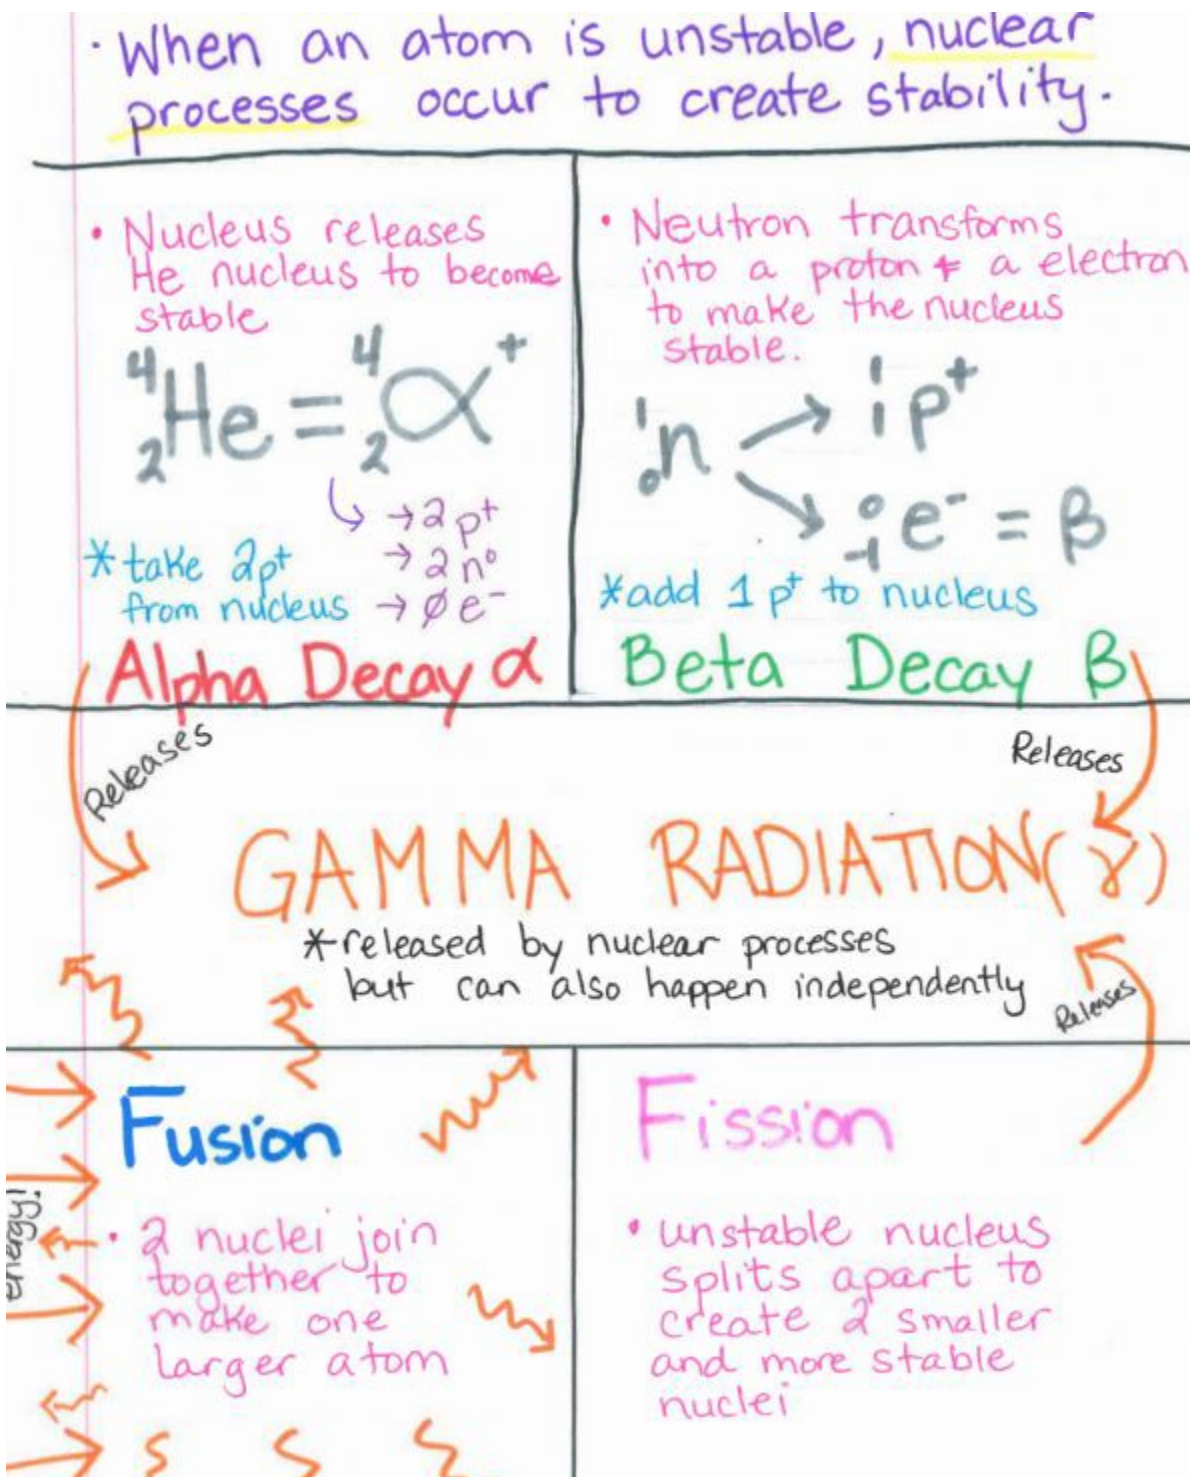 · When an atom is unstable, nuclear
processes occur to create stability.
• Nucleus releases
He nucleus to become
stable
⁴₂He = ⁴₂α⁺
→ 2p⁺
→ 2n⁰
→ ∅e⁻
*take 2p⁺
from nucleus
Alpha Decay α
• Neutron transforms
into a proton & a electron
to make the nucleus
stable.
¹₀n → ¹₁p⁺
→ ⁰₋₁e⁻ = β
*add 1p⁺ to nucleus
Beta Decay β
Releases
Releases
GAMMA RADIATION(γ)
*released by nuclear processes
but can also happen independently
Releases
Fusion
• 2 nuclei join
together to
make one
larger atom
energy!
Fission
• unstable nucleus
splits apart to
create 2 smaller
and more stable
nuclei